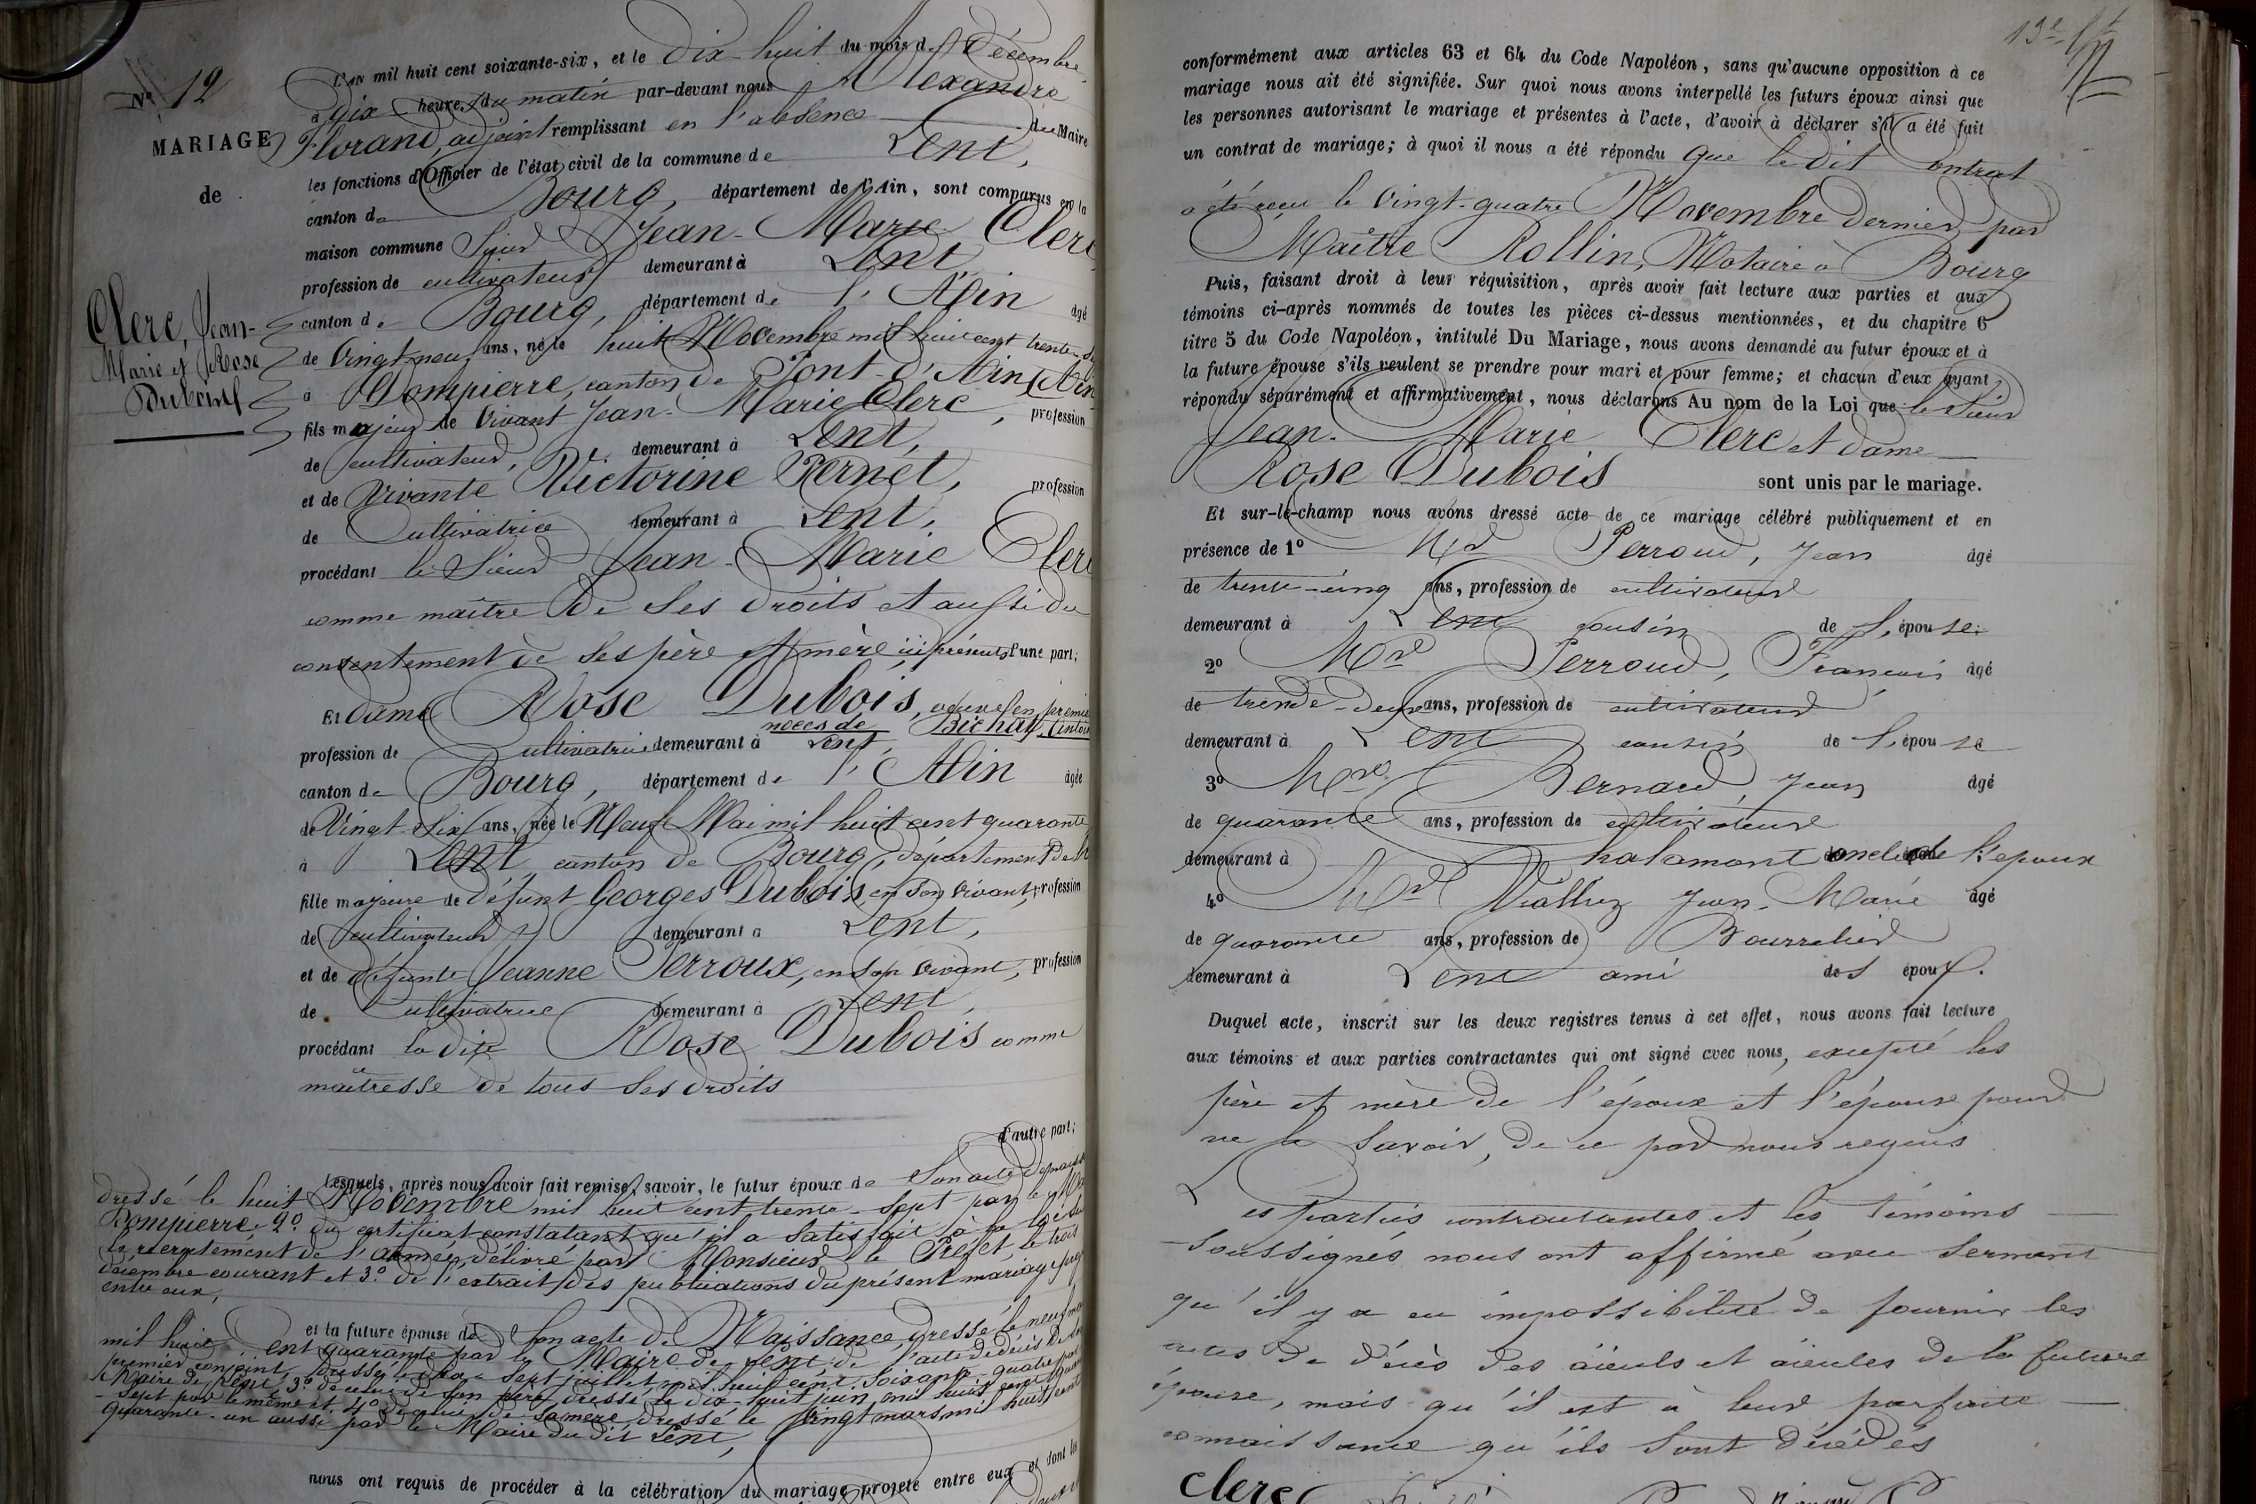 N° 12
MARIAGE
de
Clerc, Jean-
Marie et Rose
Dubois
L'an mil huit cent soixante-six, et le dix huit du mois de Décembre,
à dix heures du matin par-devant nous Alexandre
Florand, adjoint remplissant en l'absence du Maire
les fonctions d'Officier de l'état civil de la commune de Lent,
canton de Bourg, département de l'Ain, sont comparus en la
maison commune Sieur Jean-Marie Clerc
profession de cultivateur demeurant à Lent
canton de Bourg, département de l'Ain âgé
de vingt neuf ans, né le huit Novembre mil huit cent trente-
à Dompierre, canton de Pont-d'Ain (Ain
fils majeur de vivant Jean-Marie Clerc, profession
de cultivateur, demeurant à Lent,
et de vivante Victorine Pernet, profession
de Cultivatrice demeurant à Lent,
procédant le Sieur Jean-Marie Clerc
comme maître de ses droits et aussi du
consentement de ses père et mère ici présents d'une part;
Et dame Rose Dubois, veuve en premières
noces de Bichat,
profession de Cultivatrice demeurant à Lent,
canton de Bourg, département de l'Ain âgée
de Vingt-Six ans, née le Neuf Mai mil huit cent quarante
à Lent, canton de Bourg, département de
fille majeure de défunt Georges Dubois, en son vivant, profession
de cultivateur demeurant à Lent,
et de défunte Jeanne Perroux, en son vivant, profession
de Cultivatrice demeurant à Lent,
procédant la dite Rose Dubois comme
maîtresse de tous ses droits
d'autre part;
Lesquels, après nous avoir fait remise, savoir, le futur époux de Son acte de naissance
dressé le huit Novembre mil huit cent trente-sept par le Maire
Dompierre, 2° du certificat constatant qu'il a satisfait à la loi sur
le recrutement de l'armée, délivré par Monsieur le Préfet, le trois
décembre courant et 3° de l'extrait des publications du présent mariage
entre eux,
et la future épouse de Son acte de Naissance, dressé le neuf mai
mil huit cent quarante par le Maire de Lent, de l'acte de décès de son
premier conjoint, dressé le sept juillet mil huit cent soixante-quatre par
le Maire de Lent, 3° de celui de son père, dressé le dix-huit juin mil huit cent
-sept par le même et 4° de celui de sa mère dressé le vingt mars mil huit cent
quarante-un aussi par le Maire du dit Lent,
nous ont requis de procéder à la célébration du mariage projeté entre eux et dont les
conformément aux articles 63 et 64 du Code Napoléon, sans qu'aucune opposition à ce
mariage nous ait été signifiée. Sur quoi nous avons interpellé les futurs époux ainsi que
les personnes autorisant le mariage et présentes à l'acte, d'avoir à déclarer s'il a été fait
un contrat de mariage; à quoi il nous a été répondu que le dit Contrat
a été reçu le vingt-quatre Novembre dernier, par
Maître Rollin, Notaire à Bourg
Puis, faisant droit à leur réquisition, après avoir fait lecture aux parties et aux
témoins ci-après nommés de toutes les pièces ci-dessus mentionnées, et du chapitre 6
titre 5 du Code Napoléon, intitulé Du Mariage, nous avons demandé au futur époux et à
la future épouse s'ils veulent se prendre pour mari et pour femme; et chacun d'eux ayant
répondu séparément et affirmativement, nous déclarons Au nom de la Loi que le Sieur
Jean-Marie Clerc et dame
Rose Dubois sont unis par le mariage.
Et sur-le-champ nous avons dressé acte de ce mariage célébré publiquement et en
présence de 1° Mr Perroud, Jean âgé
de trente-cinq ans, profession de cultivateur
demeurant à Lent cousin de l'épouse.
2° Mr Perroud, François âgé
de trente-deux ans, profession de cultivateur
demeurant à Lent cousin de l'épouse
3° Mr Bernard, Jean âgé
de quarante ans, profession de cultivateur
demeurant à Chalamont oncle de l'époux
4° Mr Jean-Marie âgé
de quarante ans, profession de Bourrelier
demeurant à Lent ami des époux.
Duquel acte, inscrit sur les deux registres tenus à cet effet, nous avons fait lecture
aux témoins et aux parties contractantes qui ont signé avec nous, excepté les
père et mère de l'époux et l'épouse pour
ne le savoir, de ce par nous requis
Les parties contractantes et les témoins
soussignés nous ont affirmé avec serment
qu'il y a eu impossibilité de fournir les
actes de décès des aïeuls et aïeules de la future
épouse, mais qu'il est à leur parfaite
connaissance qu'ils sont décédés
Clerc